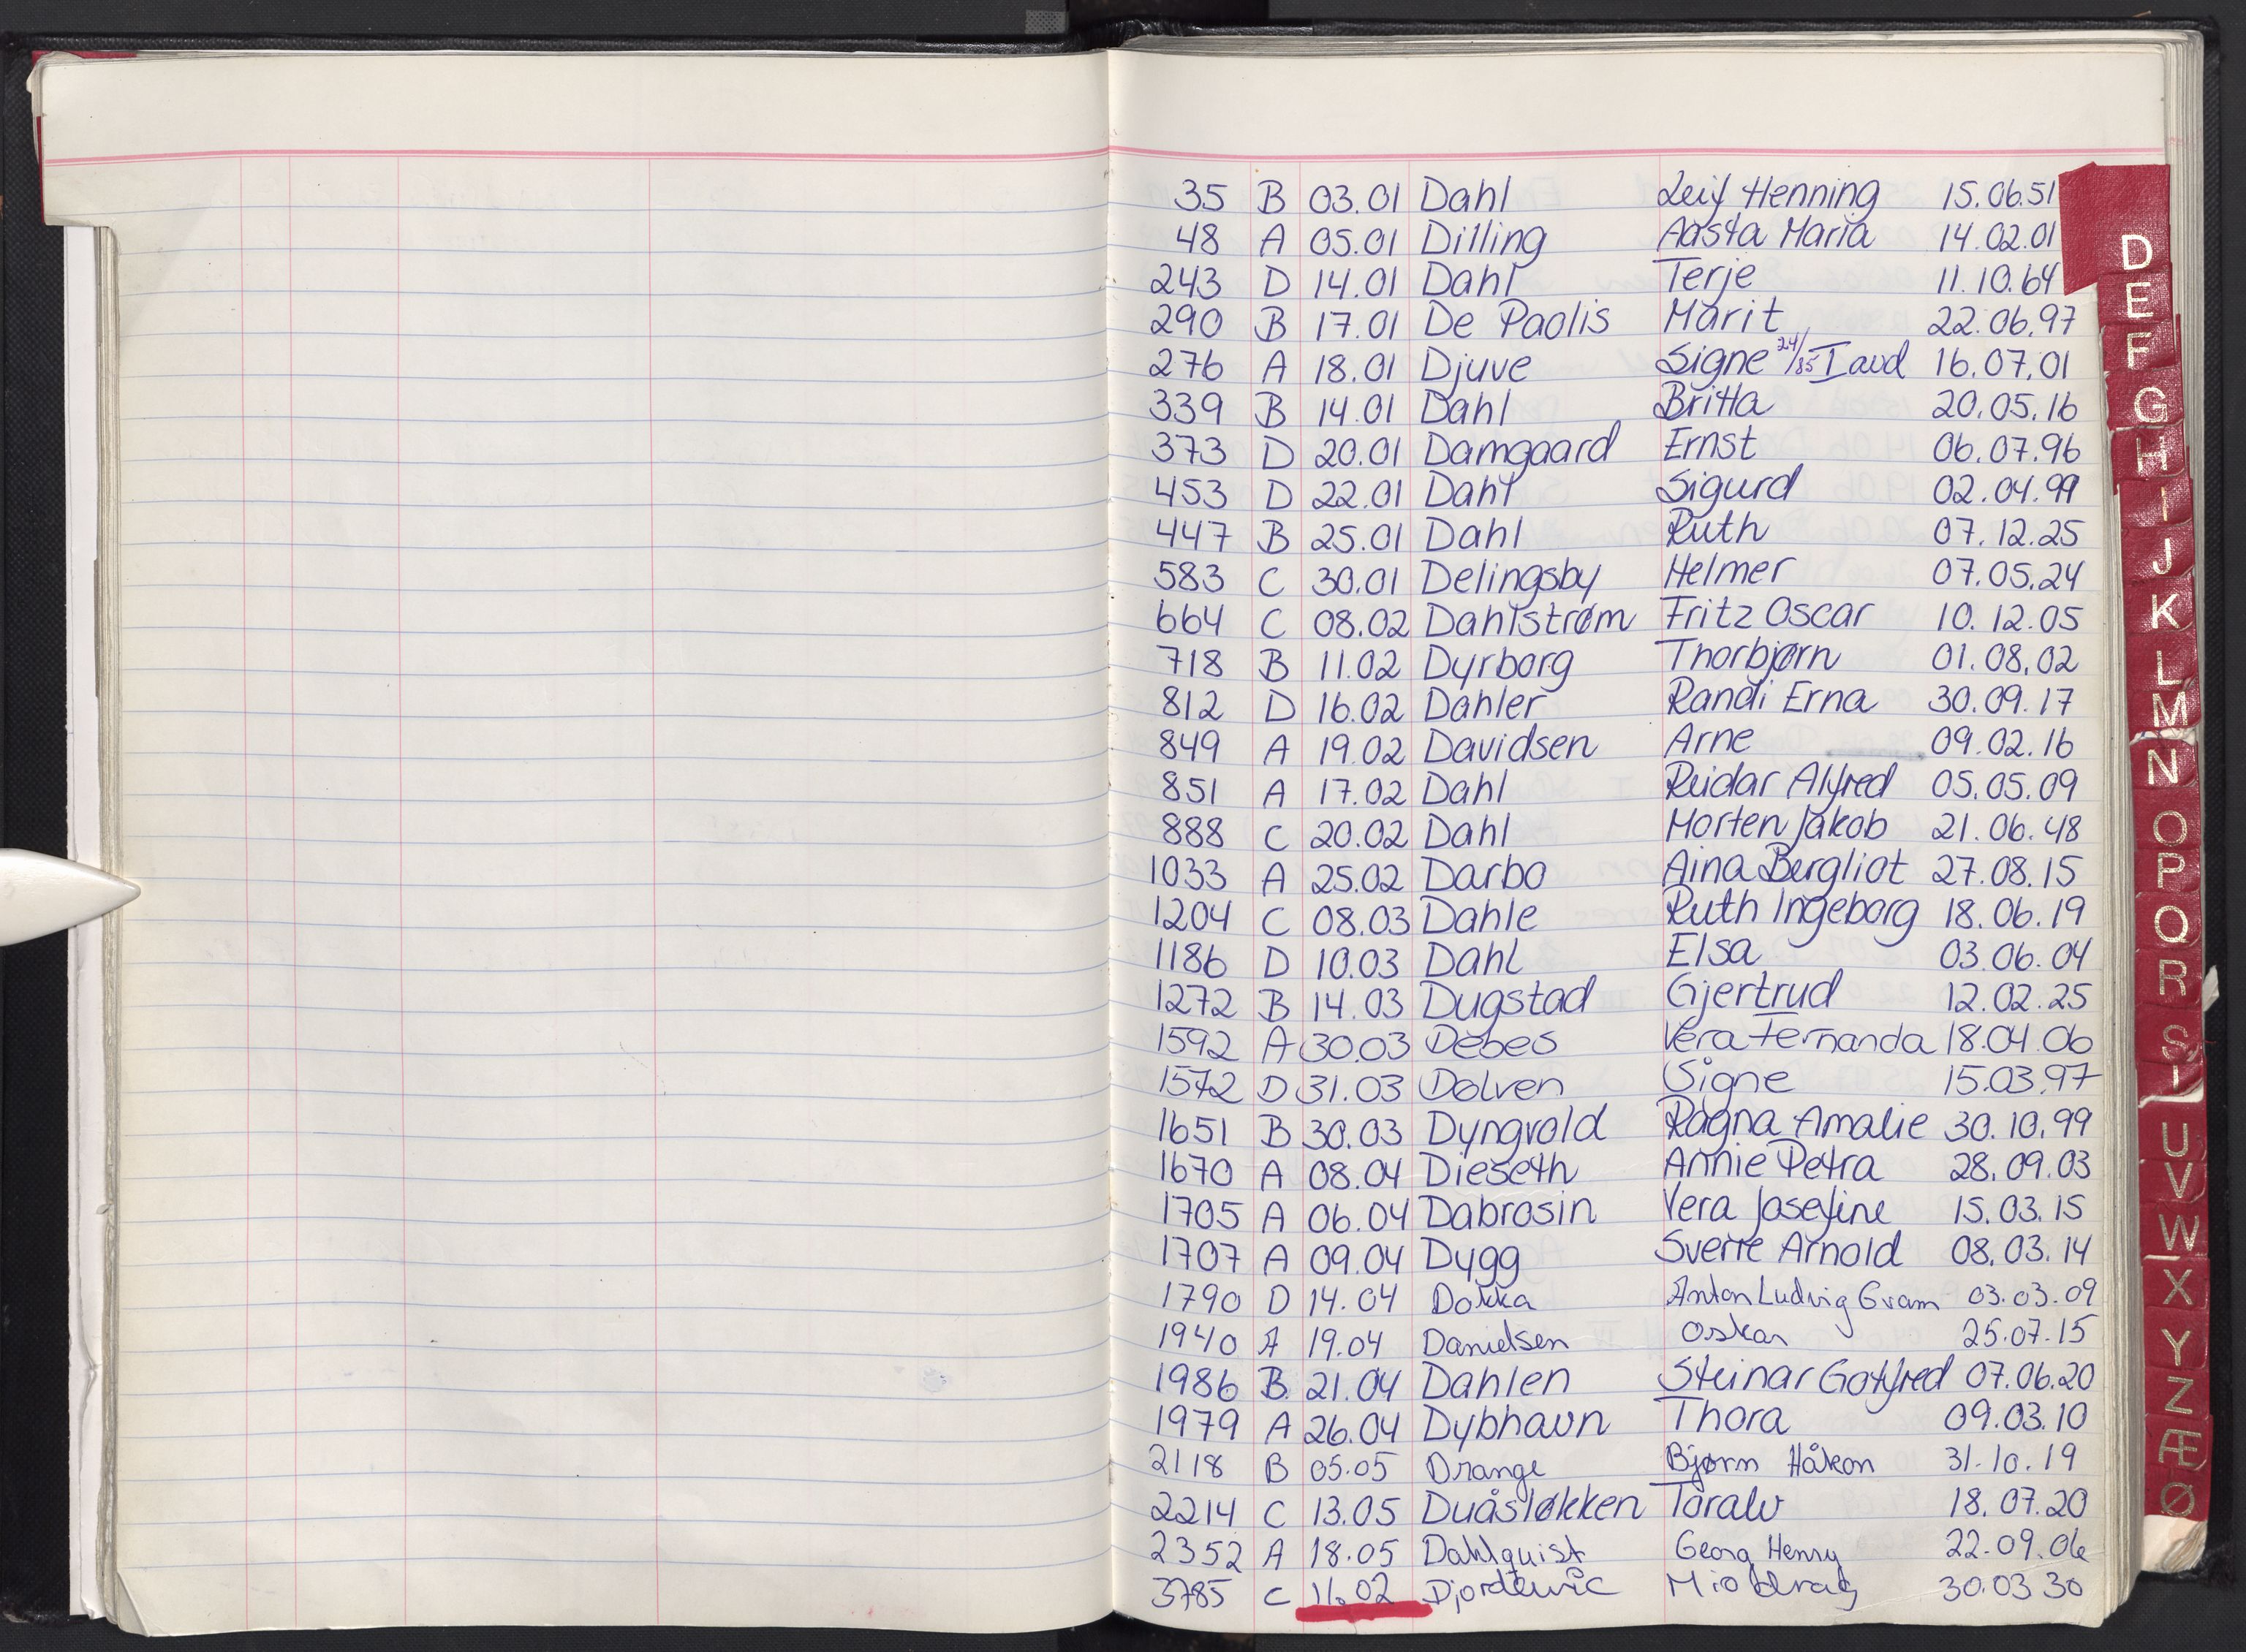 35 B 03.01 Dahl Leif Henning 15.06.51
48 A 05.01 Dilling Aasta Maria 14.02.01
243 D 14.01 Dahl Terje 11.10.64
290 B 17.01 De Paolis Marit 22.06.97
276 A 18.01 Djuve Signe 24/85 I avd 16.07.01
339 B 14.01 Dahl Britta 20.05.16
373 D 20.01 Damgaard Ernst 06.07.96
453 D 22.01 Dahl Sigurd 02.04.99
447 B 25.01 Dahl Ruth 07.12.25
583 C 30.01 Delingsby Helmer 07.05.24
664 C 08.02 Dahlstrøm Fritz Oscar 10.12.05
718 B 11.02 Dyrborg Thorbjørn 01.08.02
812 D 16.02 Dahler Randi Erna 30.09.17
849 A 19.02 Davidsen Arne 09.02.16
851 A 17.02 Dahl Reidar Alfred 05.05.09
888 C 20.02 Dahl Morten Jakob 21.06.48
1033 A 25.02 Darbo Aina Bergliot 27.08.15
1204 C 08.03 Dahle Ruth Ingeborg 18.06.19
1186 D 10.03 Dahl Elsa 03.06.04
1272 B 14.03 Dugstad Gjertrud 12.02.25
1592 A 30.03 Debes Vera Fernanda 18.04.06
1572 D 31.03 Dolven Signe 15.03.97
1651 B 30.03 Dyngvold Ragna Amalie 30.10.99
1670 A 08.04 Dieseth Annie Petra 28.09.03
1705 A 06.04 Dabrosin Vera Josefine 15.03.15
1707 A 09.04 Dygg Sverre Arnold 08.03.14
1790 D 14.04 Dokka Anton Ludvig Gram 03.03.09
1940 A 19.04 Danielsen Oskar 25.07.15
1986 B 21.04 Dahlen Steinar Gotfred 07.06.20
1979 A 26.04 Dybhavn Thora 09.03.10
2118 B 05.05 Drange Bjørn Håkon 31.10.19
2214 C 13.05 Duåsløkken Toralv 18.07.20
2352 A 18.05 Dahlquist Georg Henry 22.09.06
3785 C 11.02 Djordevic Miodrag 30.03 30
D
E
F
G
H
I
J
K
L
M
N
O
P
Q
R
S
U
V
W
X
Y
Z
Æ
Ø